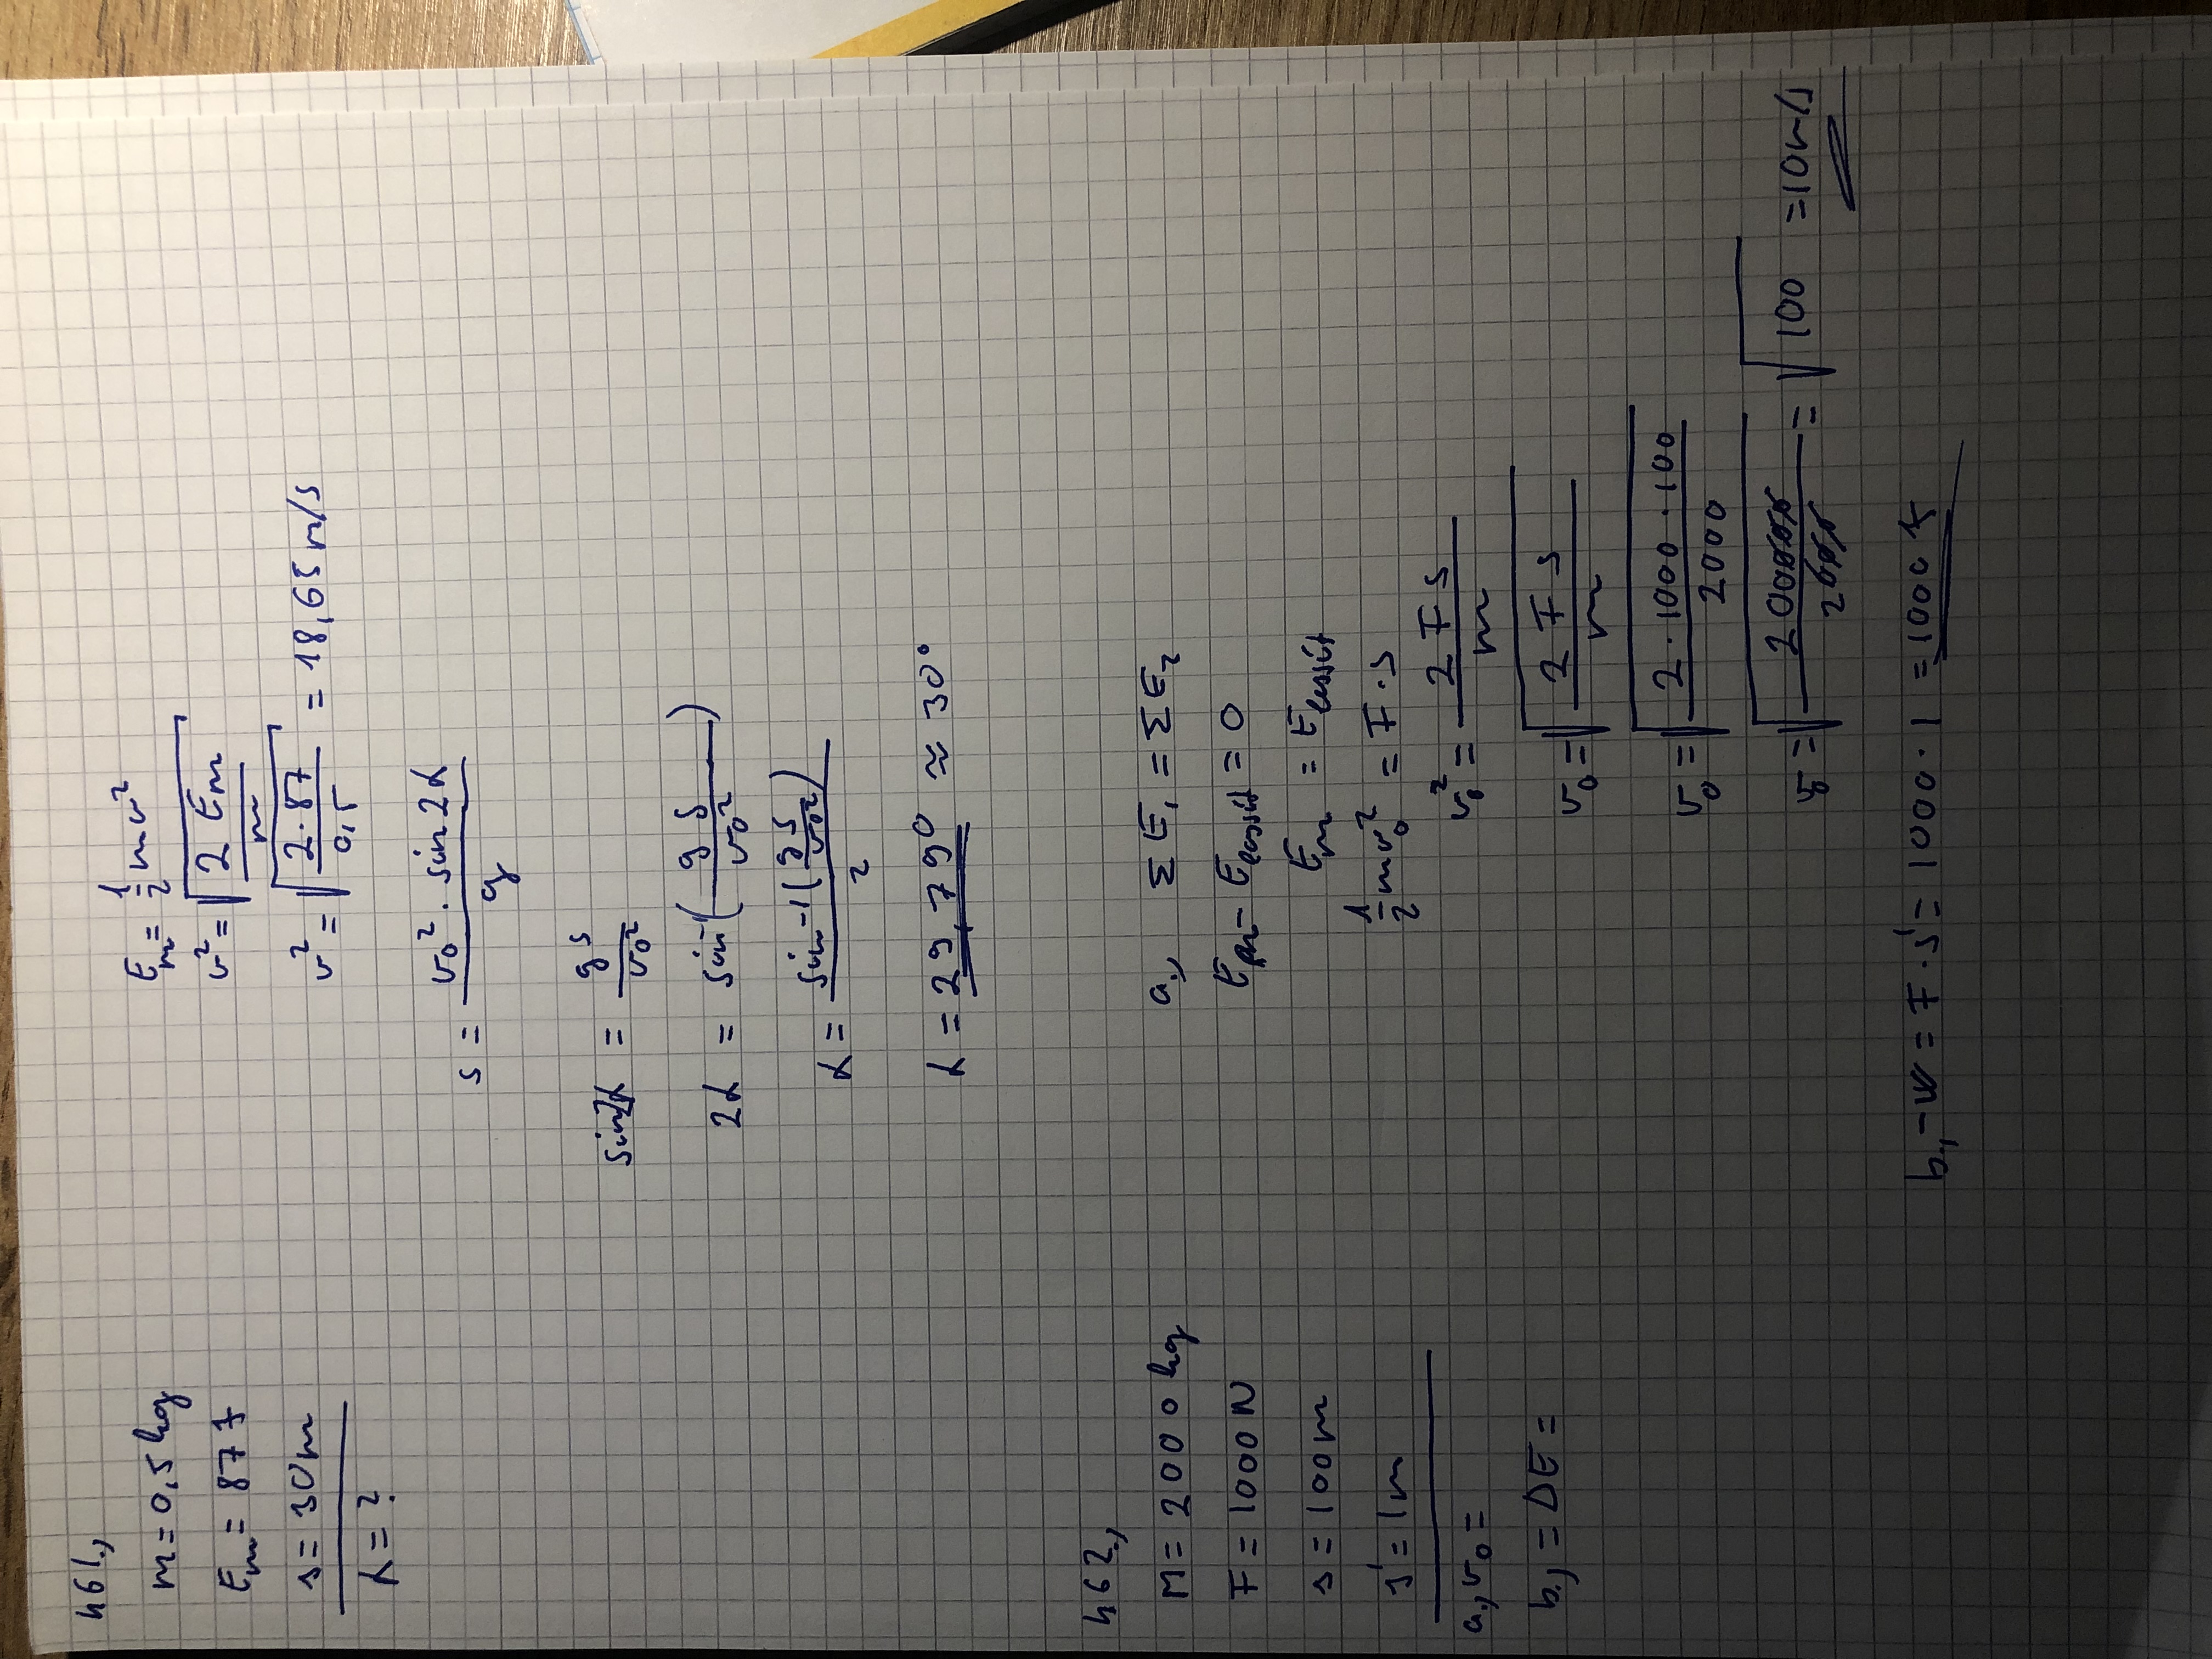 461.,
m = 0,5 kg
Em = 87 J
s = 30m
α = ?
Em = 1/2 mv²
v² = √(2 Em / m)
v² = √(2·87 / 0,5) = 18,65 m/s
s = v₀² · sin 2α / g
sin2α = g s / v₀²
2α = sin⁻¹ (g s / v₀²)
α = sin-1 (g s / v₀²) / 2
α = 29,79° ≈ 30°
462.,
M = 2000 kg
F = 1000 N
s = 100m
s' = 1m
a., v₀ =
b., = ΔE =
a., ΣE₁ = ΣE₂
Em - = 0
Em =
1/2 mv₀² = F·s
v₀² = 2 F s / m
v₀ = √(2 F s / m)
v₀ = √(2·1000·100 / 2000)
v = √(200000 / 2000) = √100 = 10 m/s
b., -W = F·s' = 1000·1 = 1000 J